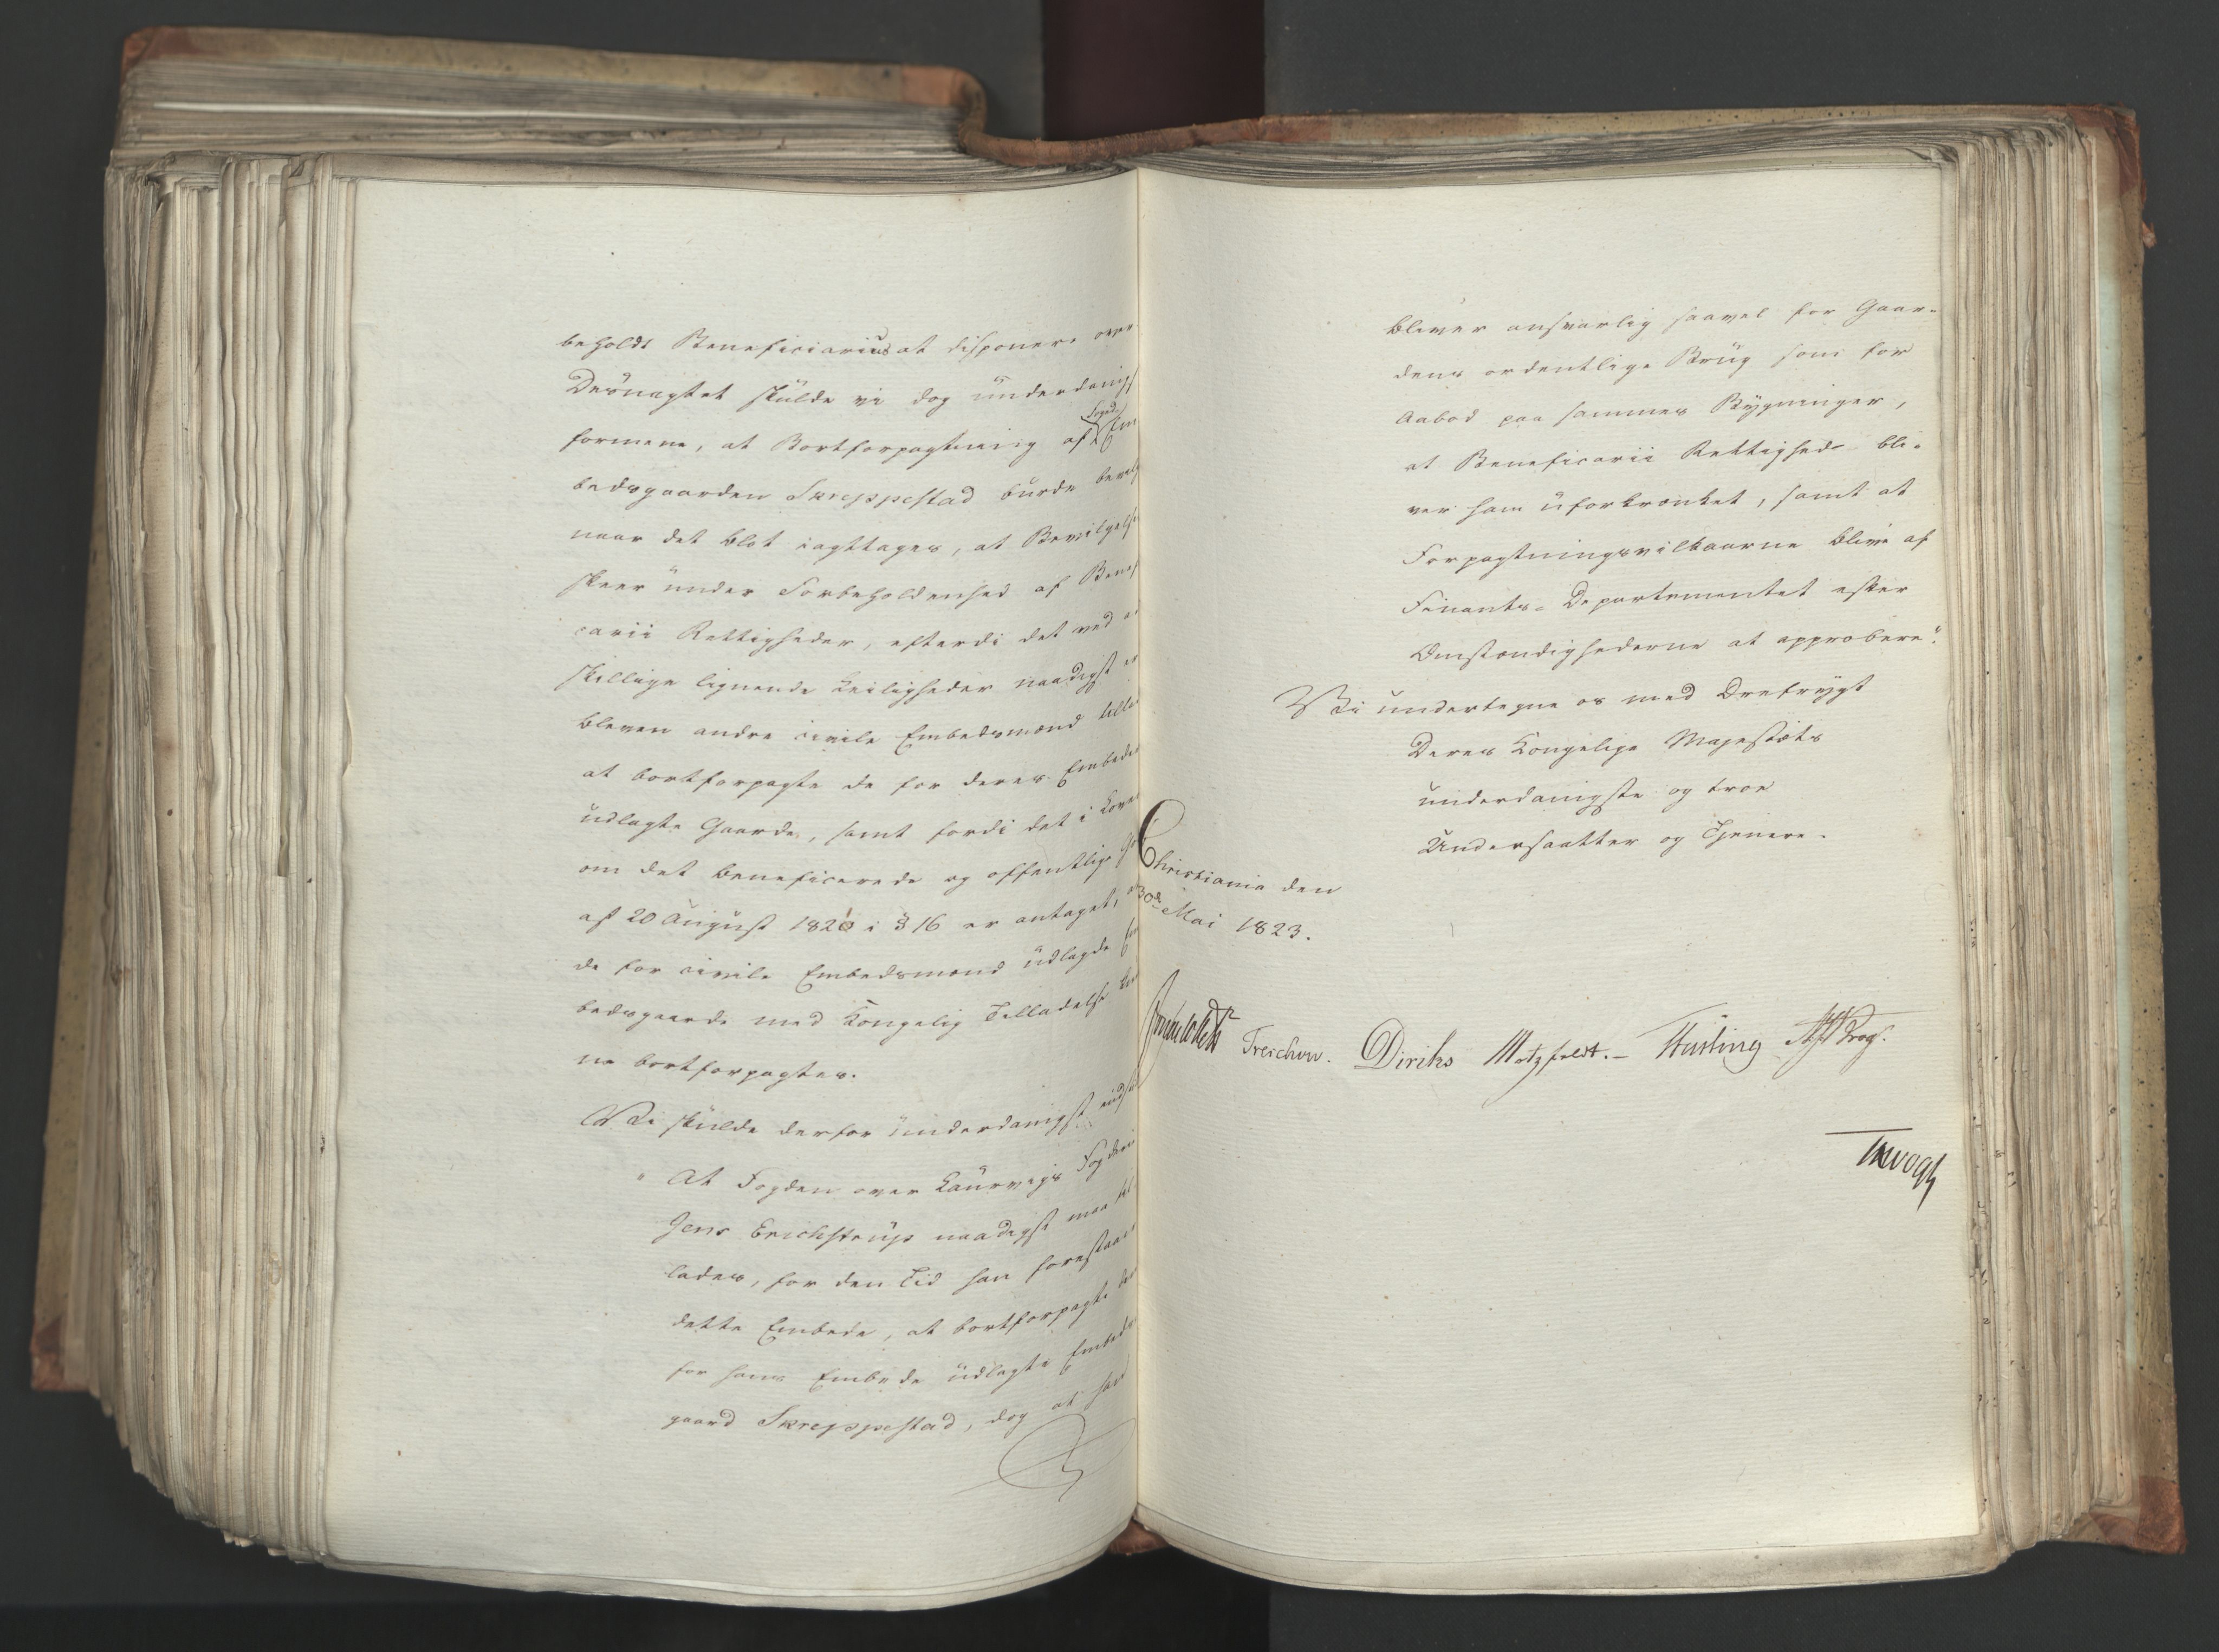 beholdt Beneficiarius at disponere over
Desuagtet skulde vi dog underdanigst
formene, at Bortforpagtning af Foged Em
bedsgaarden Skreppestad burde bevilg
naar det blot iagttages, at Bevilgelse
skeer under Forbeholdenhed af Benefi
carii Rettigheder, efterdi det ved ad
skillige lignende Leiligheder naadigst er
bleven andre civile Embedsmænd tillad
at bortforpagte de for deres Embeder
udlagte Gaarde, samt fordi det i Loven
om det beneficerede og offentlige Go
af 20 August 1821 i § 16 er antaget, at
de for civile Embedsmænd udlagde Em
bedsgaarde med Kongelig Tilladelse kun
ne bortforpagtes.
Vi skulde derfor underdanigst indst
" At Fogden over Laurvigs Fogderi
Jens Erichstrup naadigst maa til
lades, for den Tid han forestaaer
dette Embede, at bortforpagte den
for hans Embede udlagte Embeds
gaard Skreppestad, dog at han
bliver ansvarlig saavel for Gaar-
dens ordentlige Brug som for
Aabod paa sammes Bygninger,
at Beneficarii Rettigheder bli-
ver ham uforkrænket, samt at
Forpagtningsvilkaarne blive af
Finants-Departementet efter
Omstændighederne at approbere".
Vi undertegne os med Dref­rygt
Deres Kongelige Majestæts
underdanigste og troe
Undersaatter og Tjenere.
Christiania den
30de Mai 1823.
Treschow. Diriks Motzfeldt.- Fasting